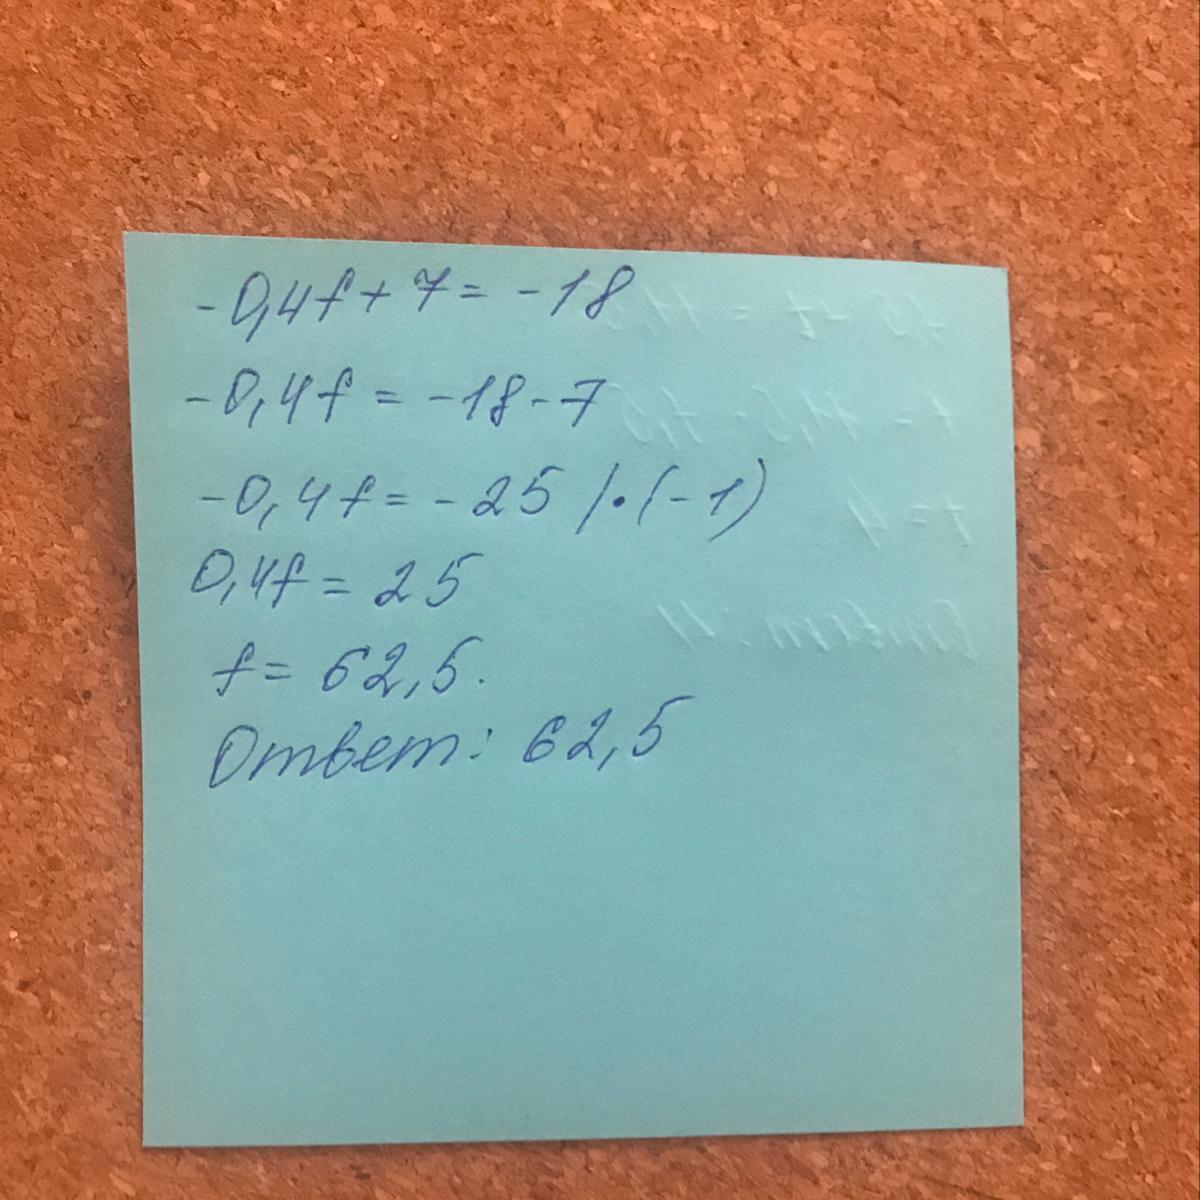 -0,4f + 7 = -18
-0,4f = -18 - 7
-0,4f = -25 /·(-1)
0,4f = 25
f = 62,5.
Ответ: 62,5